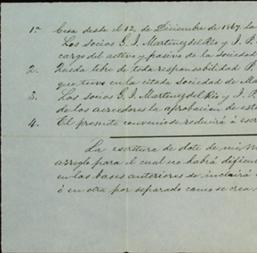 1º Cesa desde el 12 de Diciembre de 1867, la
Los socios G. I. Martinez del Rio y J. P.
cargo del activo y pasivo de la sociedad
2. Queda libre de toda responsabilidad P.
que tuvo en la citada Sociedad de Ma
3. Los socios G. I. Martinez del Rio y J. P.
de los acreedores la aprobacion de este
4. El presente convenio se reducirá á escr
La escritura de dote de mi
arreglo para el cual no habrá dificul
en las bases anteriores se incluirá
ó en otra por separado como se crea